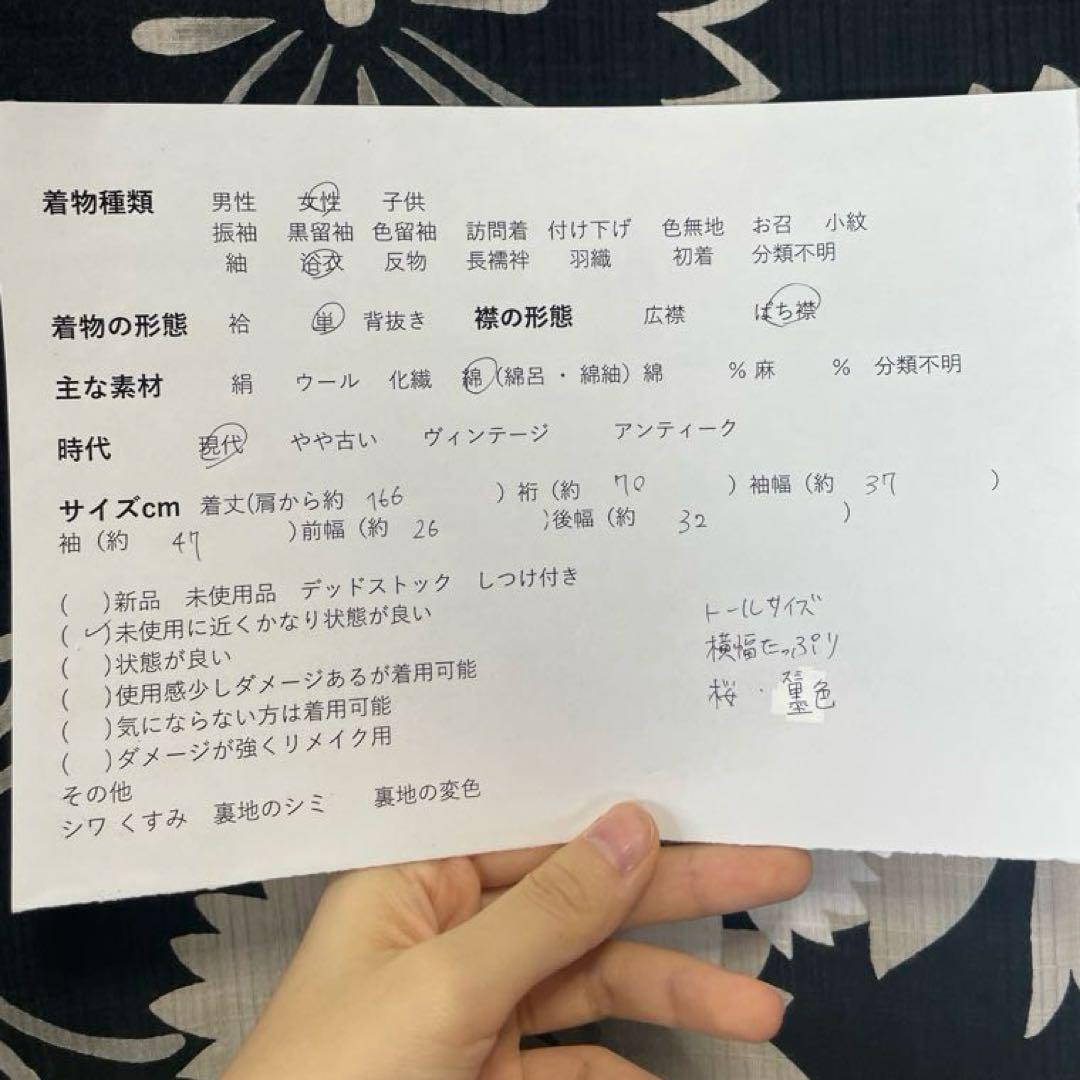 着物種類 男性 女性 子供
振袖 黒留袖 色留袖 訪問着 付け下げ 色無地 お召 小紋
紬 浴衣 反物 長襦袢 羽織 初着 分類不明
着物の形態 袷 単 背抜き 襟の形態 広襟 ばち襟
主な素材 絹 ウール 化繊 綿(綿呂・綿紬)綿 %麻 % 分類不明
時代 現代 やや古い ヴィンテージ アンティーク
サイズcm 着丈(肩から約 166 )裄(約 70 )袖幅(約 37 )
袖(約 47 )前幅(約 26 )後幅(約 32 )
( )新品 未使用品 デッドストック しつけ付き
(✓)未使用に近くかなり状態が良い
( )状態が良い
( )使用感少しダメージあるが着用可能
( )気にならない方は着用可能
( )ダメージが強くリメイク用
その他
シワ くすみ 裏地のシミ 裏地の変色
トールサイズ
横幅たっぷり
スミ
桜・墨色